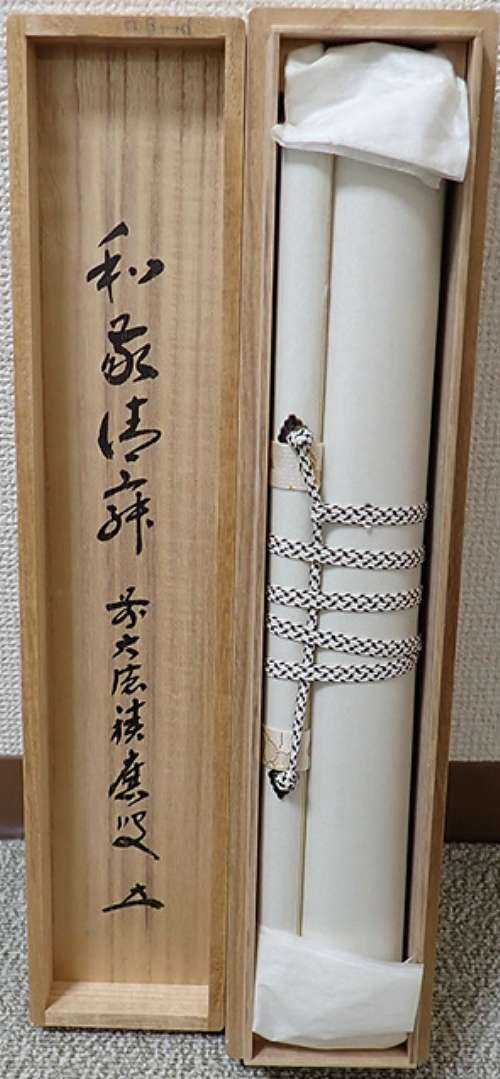 和敬清寂 前大徳積應叟